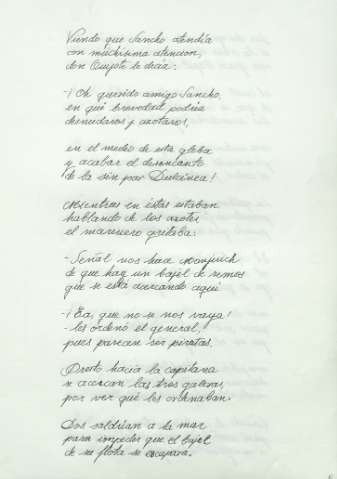 Viendo que Sancho atendía
con muchísima atencion,
don Quijote le decía:
-¡Oh querido amigo Sancho,
en qué brevedad podría
desnudaros y azotaros,
en el medio de esta
y acabar el desencanto
de la sin par Dulcinea!
Mientras en éstas estaban
hablando de los azotes
el marinero gritaba:
-Señal nos hace Monjuich
de que hay un bajel de remos
que se está acercando aquí
-¡Ea, que no se nos vaya!
-les ordenó el general,
pues parecen ser piratas.
Presto hacia la capitana
se acercan las tres galeras,
por ver qué les ordenaban.
Dos saldrían a la mar
para impedir que el bajel
de su flota se escapara.